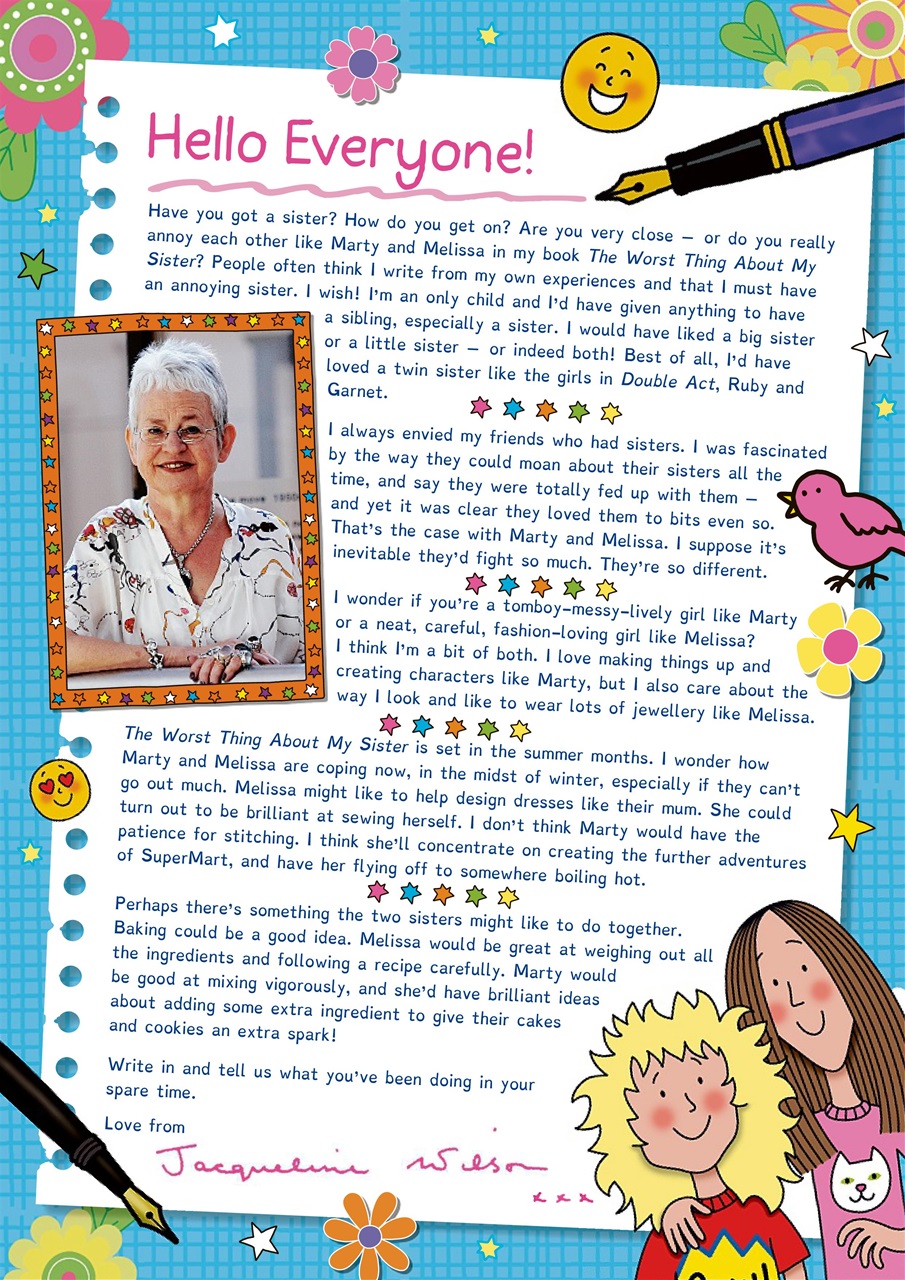 Hello Everyone!
Have you got a sister? How do you get on? Are you very close – or do you really
annoy each other like Marty and Melissa in my book The Worst Thing About My
Sister? People often think I write from my own experiences and that I must have
an annoying sister. I wish! I'm an only child and I'd have given anything to have
a sibling, especially a sister. I would have liked a big sister
or a little sister – or indeed both! Best of all, I'd have
loved a twin sister like the girls in Double Act, Ruby and
Garnet.
I always envied my friends who had sisters. I was fascinated
by the way they could moan about their sisters all the
time, and say they were totally fed up with them –
and yet it was clear they loved them to bits even so.
That's the case with Marty and Melissa. I suppose it's
inevitable they'd fight so much. They're so different.
I wonder if you're a tomboy-messy-lively girl like Marty
or a neat, careful, fashion-loving girl like Melissa?
I think I'm a bit of both. I love making things up and
creating characters like Marty, but I also care about the
way I look and like to wear lots of jewellery like Melissa.
The Worst Thing About My Sister is set in the summer months. I wonder how
Marty and Melissa are coping now, in the midst of winter, especially if they can't
go out much. Melissa might like to help design dresses like their mum. She could
turn out to be brilliant at sewing herself. I don't think Marty would have the
patience for stitching. I think she'll concentrate on creating the further adventures
of SuperMart, and have her flying off to somewhere boiling hot.
Perhaps there's something the two sisters might like to do together.
Baking could be a good idea. Melissa would be great at weighing out all
the ingredients and following a recipe carefully. Marty would
be good at mixing vigorously, and she'd have brilliant ideas
about adding some extra ingredient to give their cakes
and cookies an extra spark!
Write in and tell us what you've been doing in your
spare time.
Love from
Jacqueline Wilson
x x x